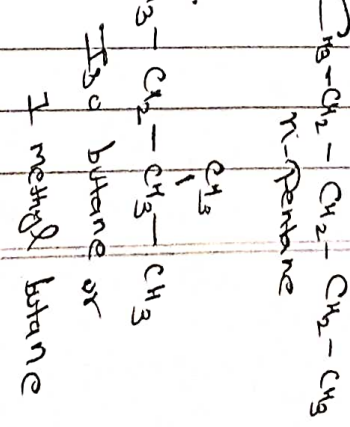 CH3-CH2-CH2-CH2-CH3
n-Pentane
CH3
3-CH2-CH3-CH3
Iso butane or
I methyl butane